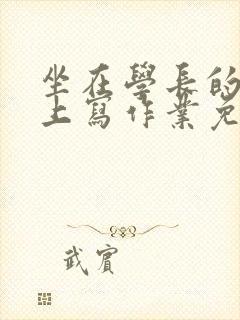 坐在學長的
上寫作業免
武賓